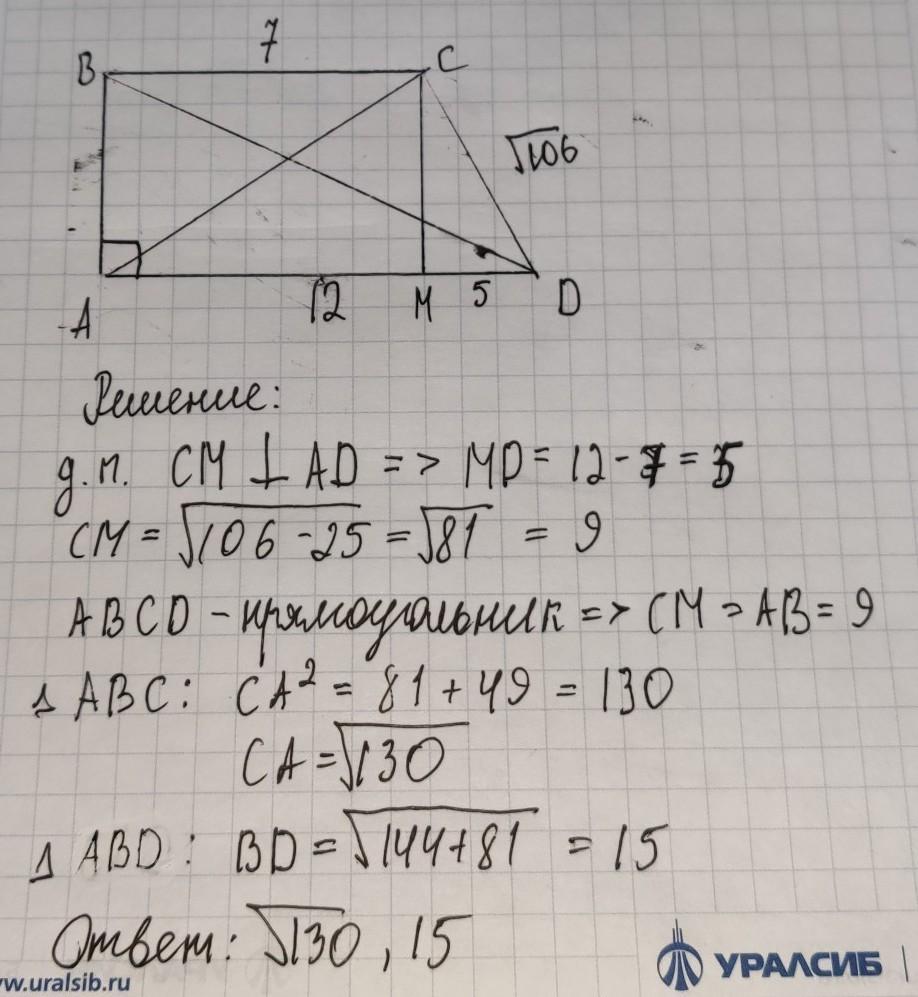 7
B C
√106
A 12 M 5 D
Решение:
д.п. CM ⊥ AD => MD = 12 - 7 = 5
CM = √106 - 25 = √81 = 9
ABCD - прямоугольник => CM = AB = 9
Δ ABC: CA² = 81 + 49 = 130
CA = √130
Δ ABD: BD = √144+81 = 15
Ответ: √130, 15
w.uralsib.ru
УРАЛСИБ |